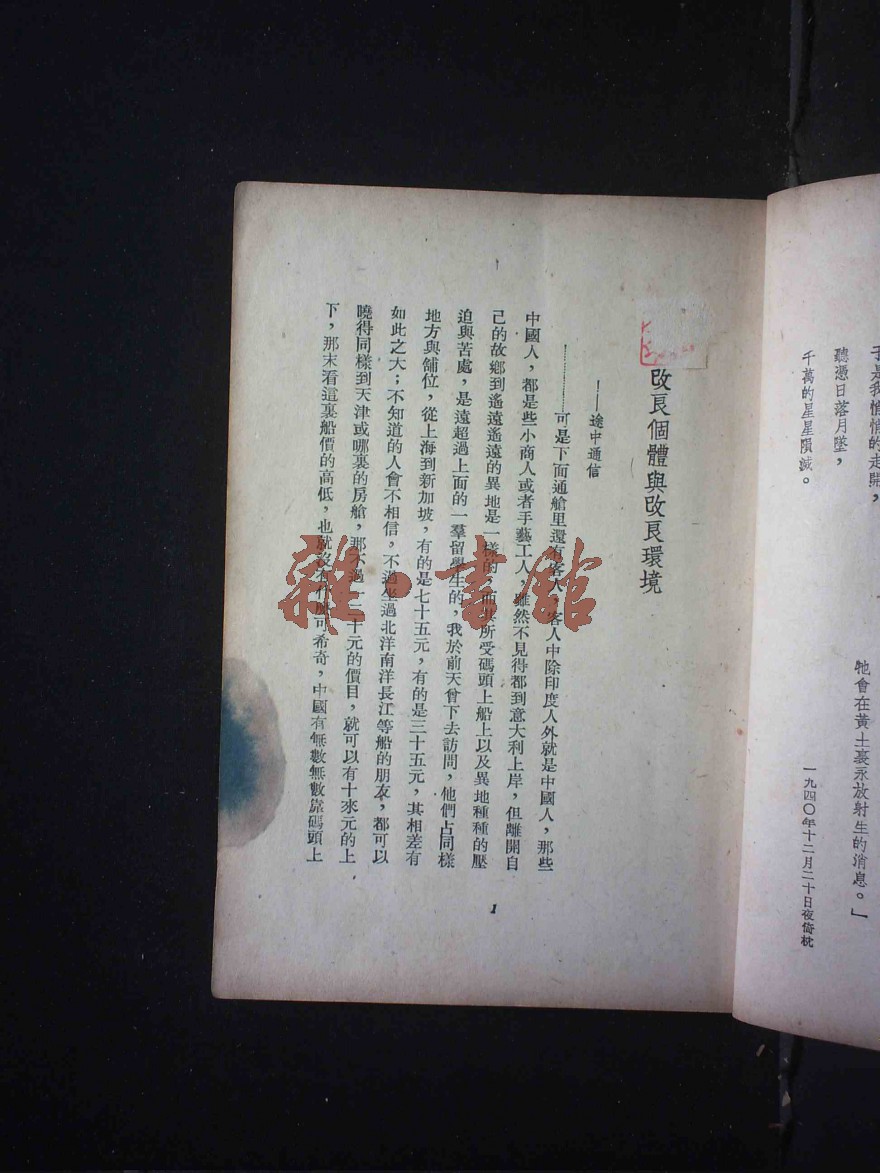 于是我悄悄的走開，
聽憑日落月墜，
千萬的星星隕滅。
牠會在黃土裏永放射生的消息。」
一九四〇年十二月二十日夜倚枕
改良個體與改良環境
！——途中通信
…………可是下面通艙里還有客人，客人中除印度人外就是中國人，那些
中國人，都是些小商人或者手藝工人，雖然不見得都到意大利上岸，但離開自
己的故鄉到遙遠遙遠的異地是一樣的，而其所受碼頭上船上以及異地種種的壓
迫與苦處，是遠超過上面的一羣留學生的，我於前天曾下去訪問，他們占同樣
地方與舖位，從上海到新加坡，有的是七十五元，有的是三十五元，其相差有
如此之大；不知道的人會不相信，不過坐過北洋南洋長江等船的朋友，都可以
曉得同樣到天津或哪裏的房艙，那不過二十元的價目，就可以有十來元的上
下，那末看這裏船價的高低，也就沒有什麼可希奇，中國有無數無數靠碼頭上
1
雜·書館